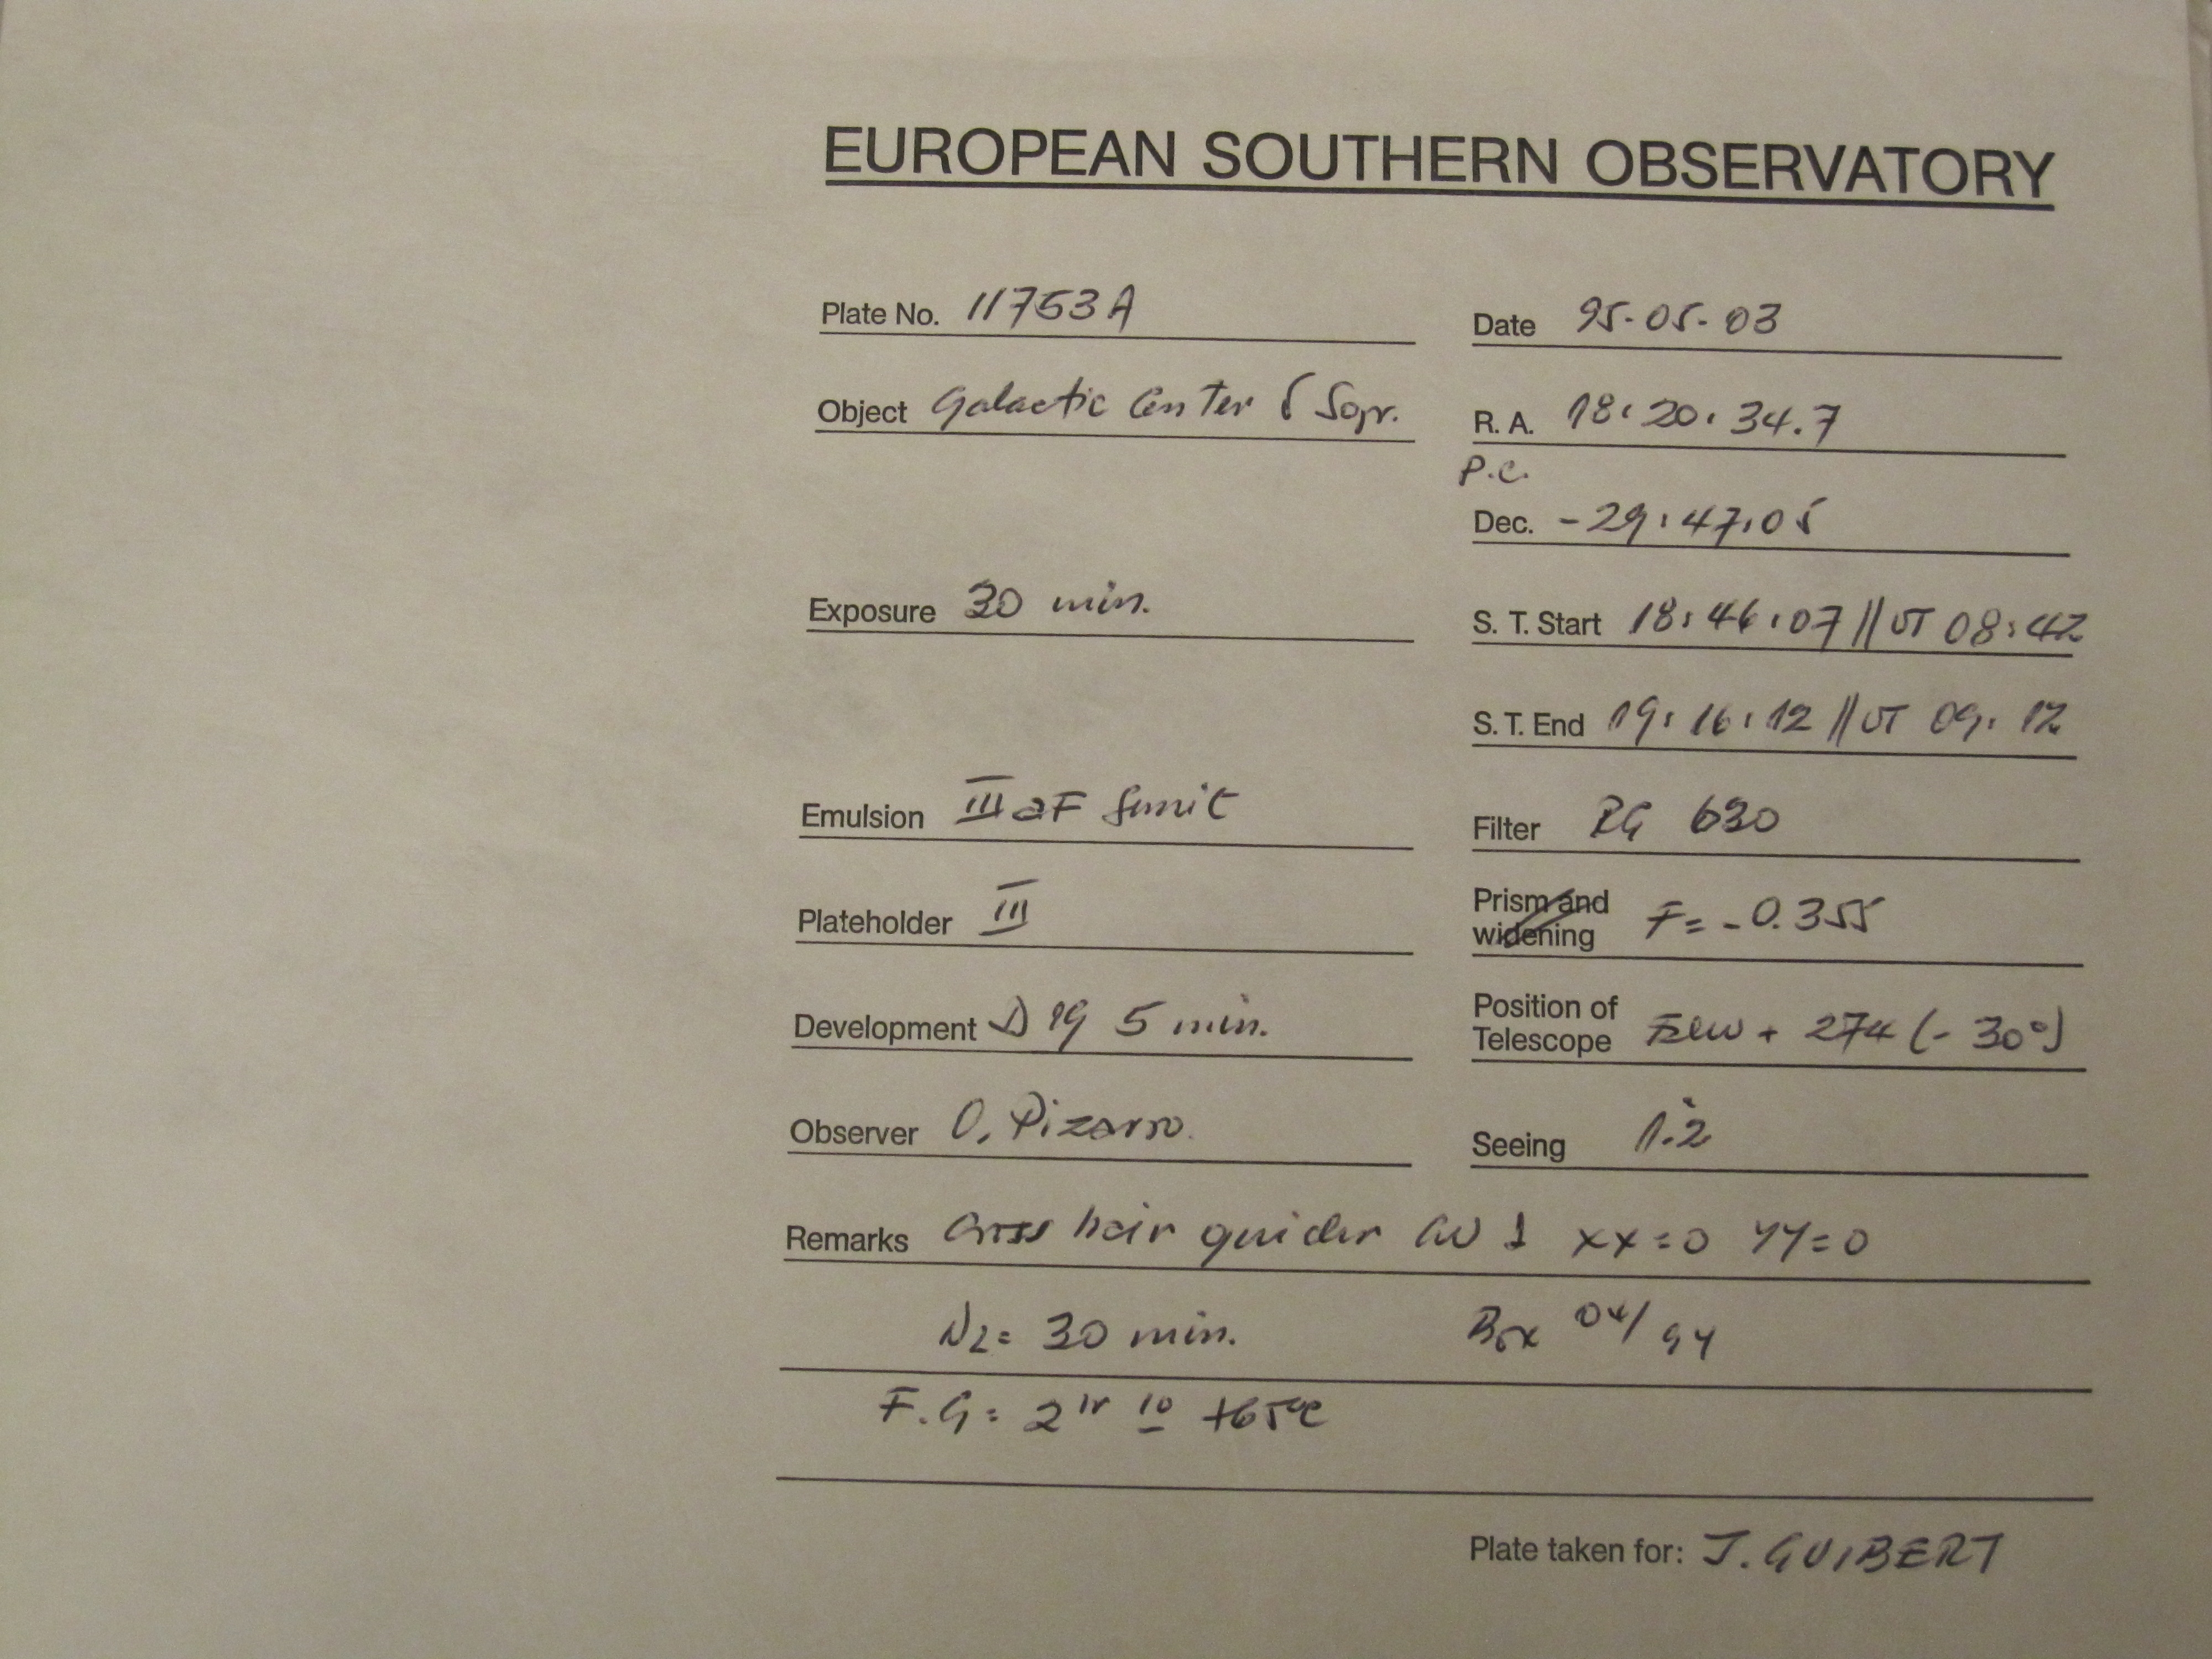 EUROPEAN SOUTHERN OBSERVATORY
Plate No. 11753A
Date 95-05-03
Object Galactic Center δ Sgr.
R. A. 18:20:34.7
P.C.
Dec. -29:47:05
Exposure 30 min.
S. T. Start 18:46:07 // UT 08:42
S. T. End 19:16:12 // UT 09:12
Emulsion III aF
Filter RG 630
Plateholder III
Prism and widening F= -0.355
Development D 19 5 min.
Position of Telescope + 274 (-30°)
Observer O. Pizarro.
Seeing 1.2
Remarks Cross hair guider xx=0 YY=0
N2= 30 min. Box 04/94
F.G= 2hr 10 +65°C
Plate taken for: J. GUIBERT